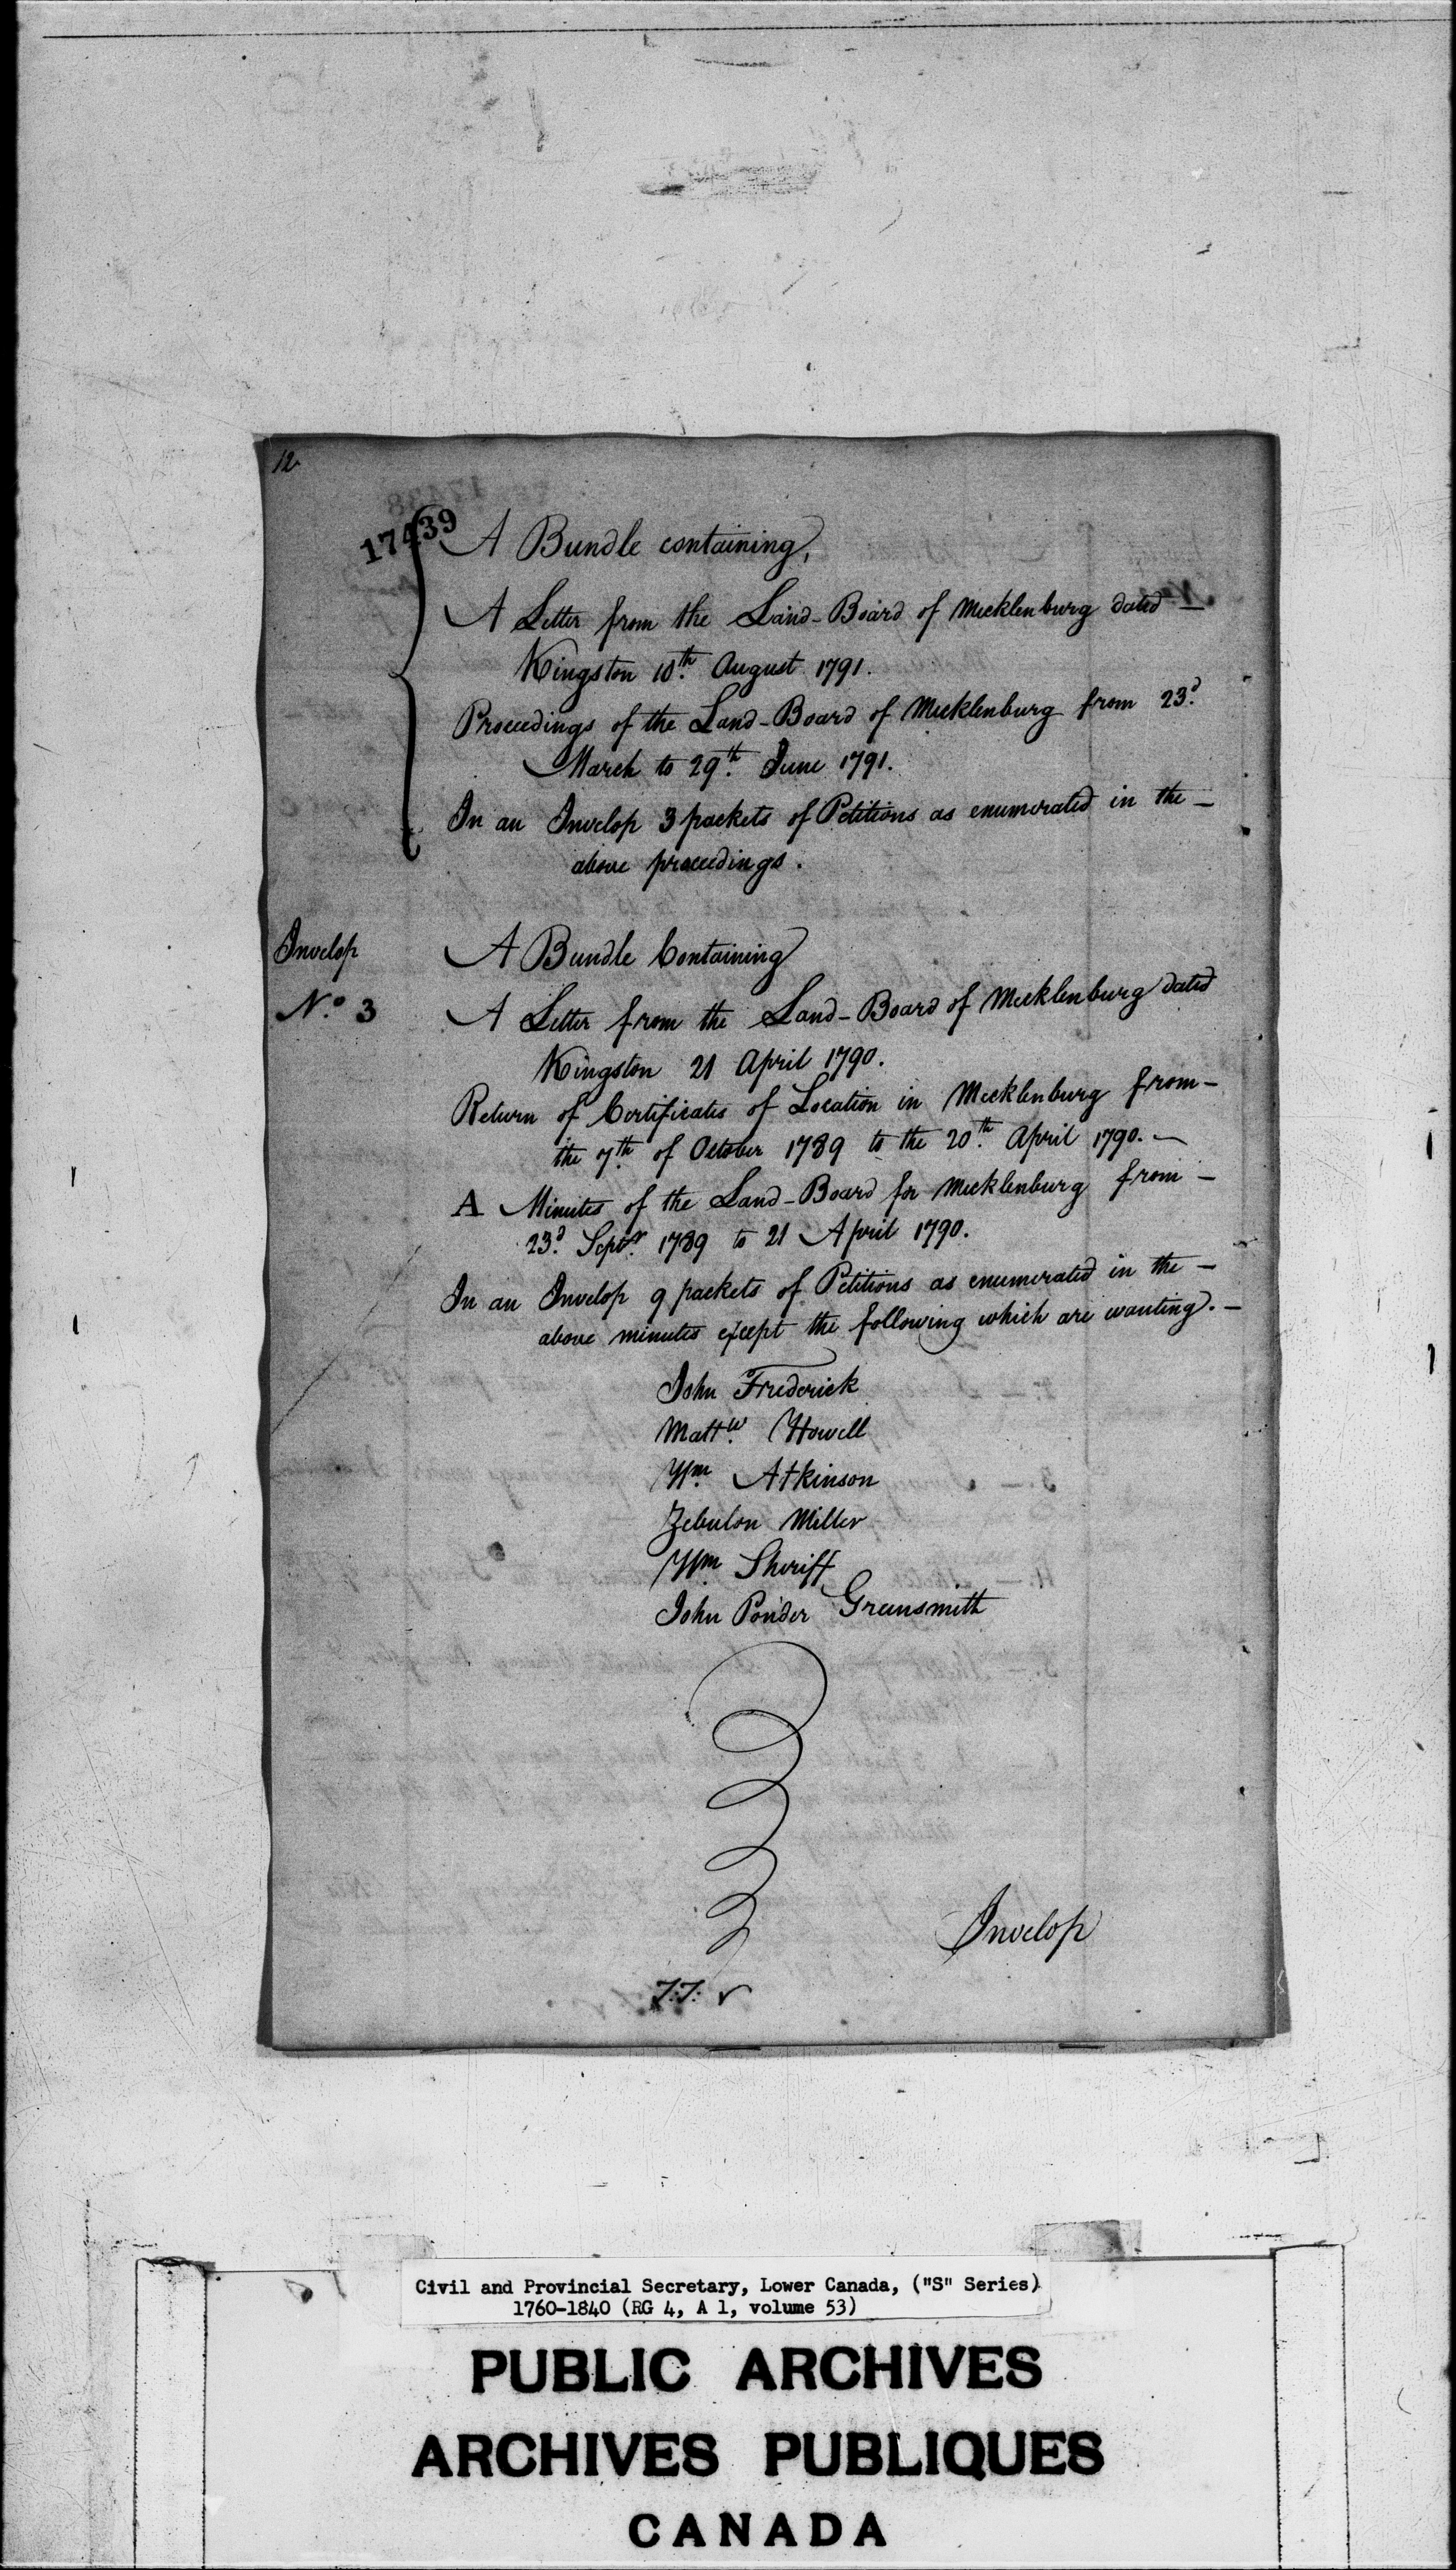 12
17439
A Bundle containing,
A Letter from the Land-Board of Mecklenburg dated —
Kingston 10th. August 1791.
Proceedings of the Land-Board of Mecklenburg from 23d.
March to 29th. June 1791.
In an Invelop 3 packets of Petitions as enumerated in the —
above proceedings.
Invelop
No. 3
A Bundle Containing
A Letter from the Land-Board of Mecklenburg dated
Kingston 21 April 1790.
Return of Certificates of Location in Mecklenburg from —
the 7th. of October 1789 to the 20th. April 1790. —
A Minutes of the Land-Board for Mecklenburg from —
23d. Septr. 1789 to 21 April 1790.
In an Invelop 9 packets of Petitions as enumerated in the —
above minutes except the following which are wanting. —
John Frederick
Mattw. Howell
Wm. Atkinson
Zebulon Miller
Wm. Sheriff
John Ponder Greensmith
Invelop
Civil and Provincial Secretary, Lower Canada, ("S" Series)
1760-1840 (RG 4, A 1, volume 53)
PUBLIC ARCHIVES
ARCHIVES PUBLIQUES
CANADA